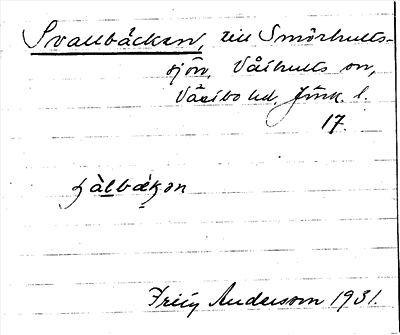 Svallbäcken, till Smörhults-
sjön, Våthults sn,
Västbo hd, Jönk. l.
17.
bäkən
Anderson 1931.